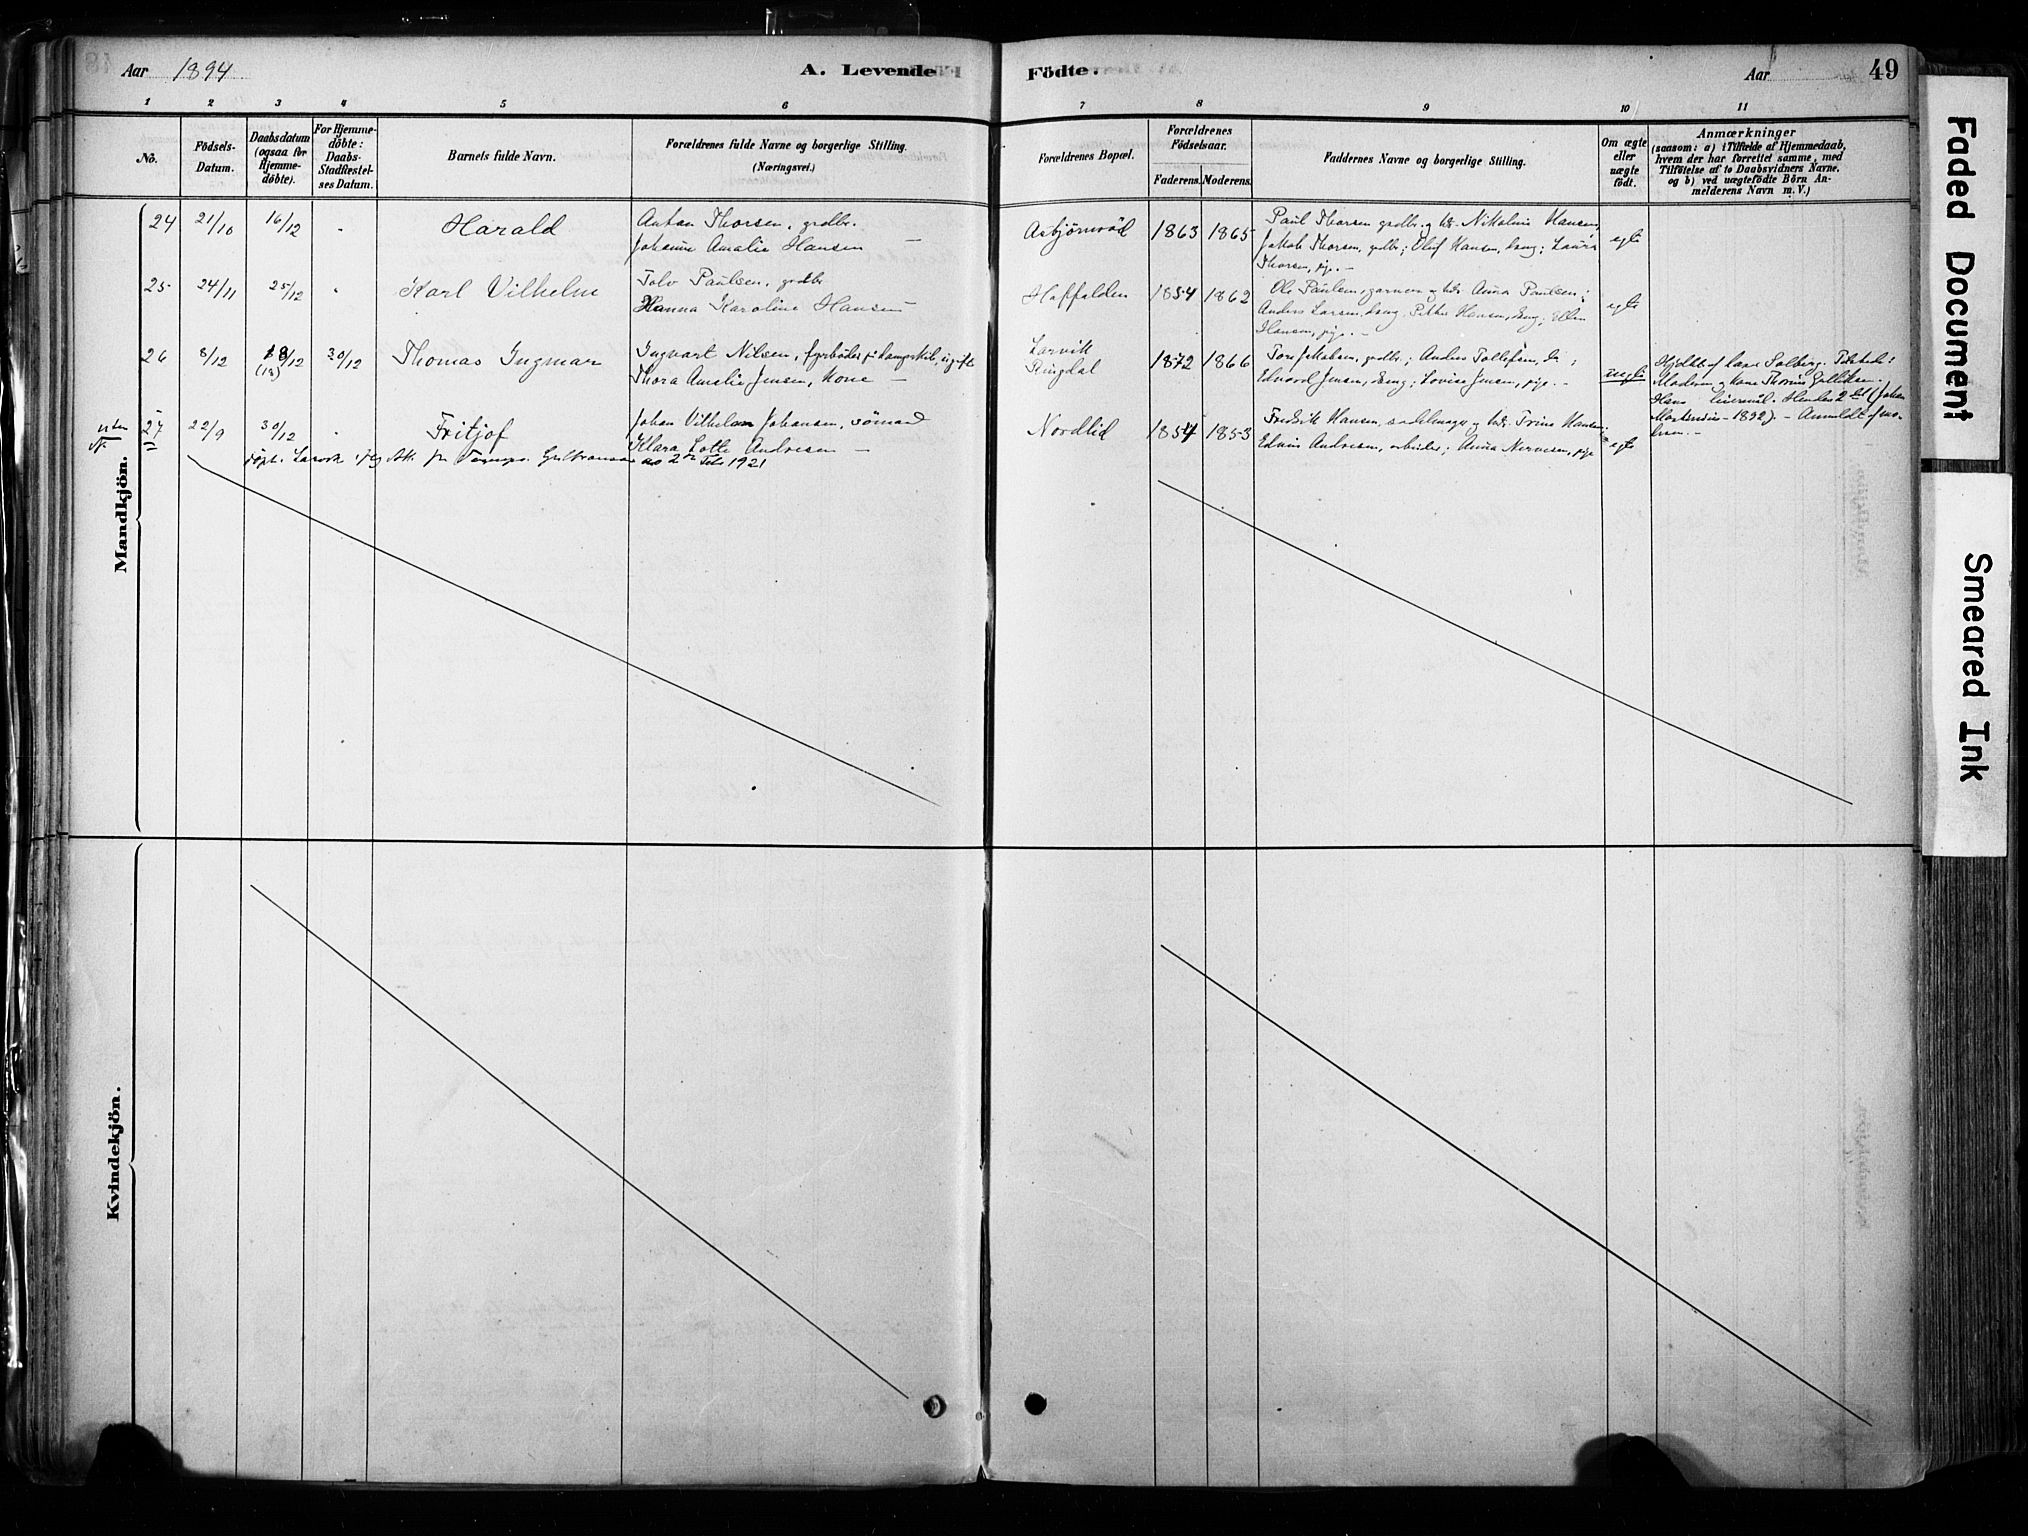 Aar 1894
A. Levende
Födte.
Aar
49
1 2 3 4 5 6 7 8 9 10 11
No.
Födsels-
Datum.
Daabsdatum
(ogsaa for
Hjemme-
döbte).
For Hjemme-
döbte:
Daabs-
Stadfæstel-
ses Datum.
Barnets fulde Navn.
Forældrenes fulde Navne og borgerlige Stilling.
(Næringsvei.)
Forældrenes Bopæl.
Forældrenes
Födselsaar.
Faderens. Moderens.
Faddernes Navne og borgerlige Stilling.
Om ægte
eller
uægte
födt.
Anmærkninger
(saasom: a) i Tilfælde af Hjemmedaab,
hvem der har forrettet samme, med
Tilföielse af to Daabsvidners Navne,
og b) ved uægtefödte Börn An-
melderens Navn m. V.)
Mandkjön.
24 21/10 16/12 " Harald
Anton Thorsen, grdbr.
Johanne Amalie Hansen —
Asbjørnrød 1863 1865
Paul Thorsen grdbr. og h. Nikoline Hansen,
Jakob Thorsen, grdbr; Oluf Hansen, ung; Laura
Thorsen, pige. —
egte
25 24/11 25/12 " Karl Vilhelm
Tolv Paulsen, grdbr
Hanna Karoline Hansen —
Haffalden 1854 1862
Ole Paulsen, og Anna Paulsen;
Anders Larsen, ung, Petter Hansen, ung; Ellen
Hansen, pige. —
egte
26 8/12 18/12 (13) 30/12 Thomas Ingmar
Ingvart Nilsen, fyrbøder på dampskib, ugift
Thora Amalie Jensen, kone —
Larvik
Ringdal
1872 1866
Tore Jakobsen, grdbr; Anders Tollefsen, do;
Edvard Jensen, ung; Lovise Jensen, pige. —
uegte
Hjdbt. af lærer Solberg. Tilstede:
Moderen og kone Thorine Gulliksen.
Hans leiermål. Hendes 2det (Johan
1892). — Anmeldt af mo-
deren. —
27 22/9 30/12 " Fritjof
Johan Vilhelm Johansen, sömand
Klara Lotte Andresen —
Nordlid 1854 1853
Fredrik Hansen, sadelmager og h. Trine Hansen;
Edvin Andresen, arbeider; Anna Nervesen, pige
egte
2 Feb 1921
Kvindekjön.
Faded Document
Smeared Ink